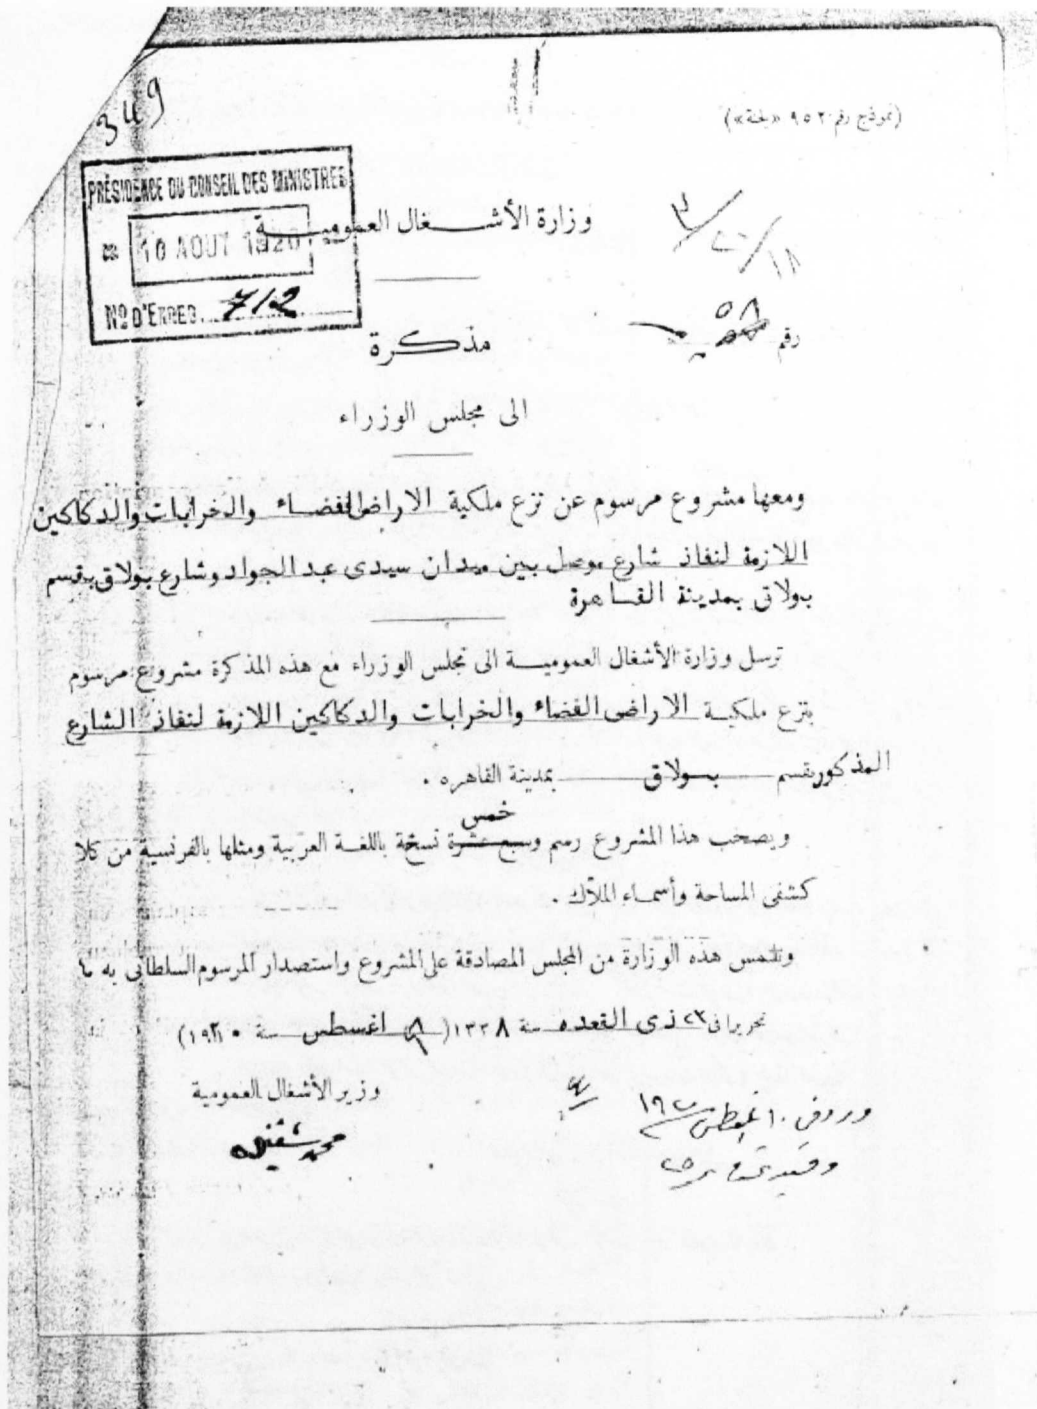 349
(نموذج رقم ٩٥٢ «لجنة»)
PRÉSIDENCE DU CONSEIL DES MINISTRES
10 AOUT 1920
No D'ENREG. 712
وزارة الأشغال العمومية
١٨/٢٠/٣
رقم ٥٨
مذكرة
الى مجلس الوزراء
ومعها مشروع مرسوم عن نزع ملكية الاراضى الفضاء والخرابات والدكاكين
اللازمة لنفاذ شارع موصل بين ميدان سيدى عبد الجواد وشارع بولاق بقسم
بولاق بمدينة القاهرة
ترسل وزارة الأشغال العمومية الى مجلس الوزراء مع هذه المذكرة مشروع مرسوم
بنزع ملكية الاراضى الفضاء والخرابات والدكاكين اللازمة لنفاذ الشارع
المذكور بقسم بولاق بمدينة القاهره .
خمس
ويصحب هذا المشروع رسم وسبع عشرة نسخة باللغة العربية ومثلها بالفرنسية من كلا
كشفى المساحة وأسماء الملاك .
وتلتمس هذه الوزارة من المجلس المصادقة على المشروع واستصدار المرسوم السلطانى به
تحريرا فى ٢٣ ذى القعده سنة ١٣٣٨ ( ٨ اغسطس سنة ١٩٢٠ )
وزير الأشغال العمومية
محمد شفيق
ورد فى ١٠ اغسطس ١٩٢٠
وقيد تحت نمرة